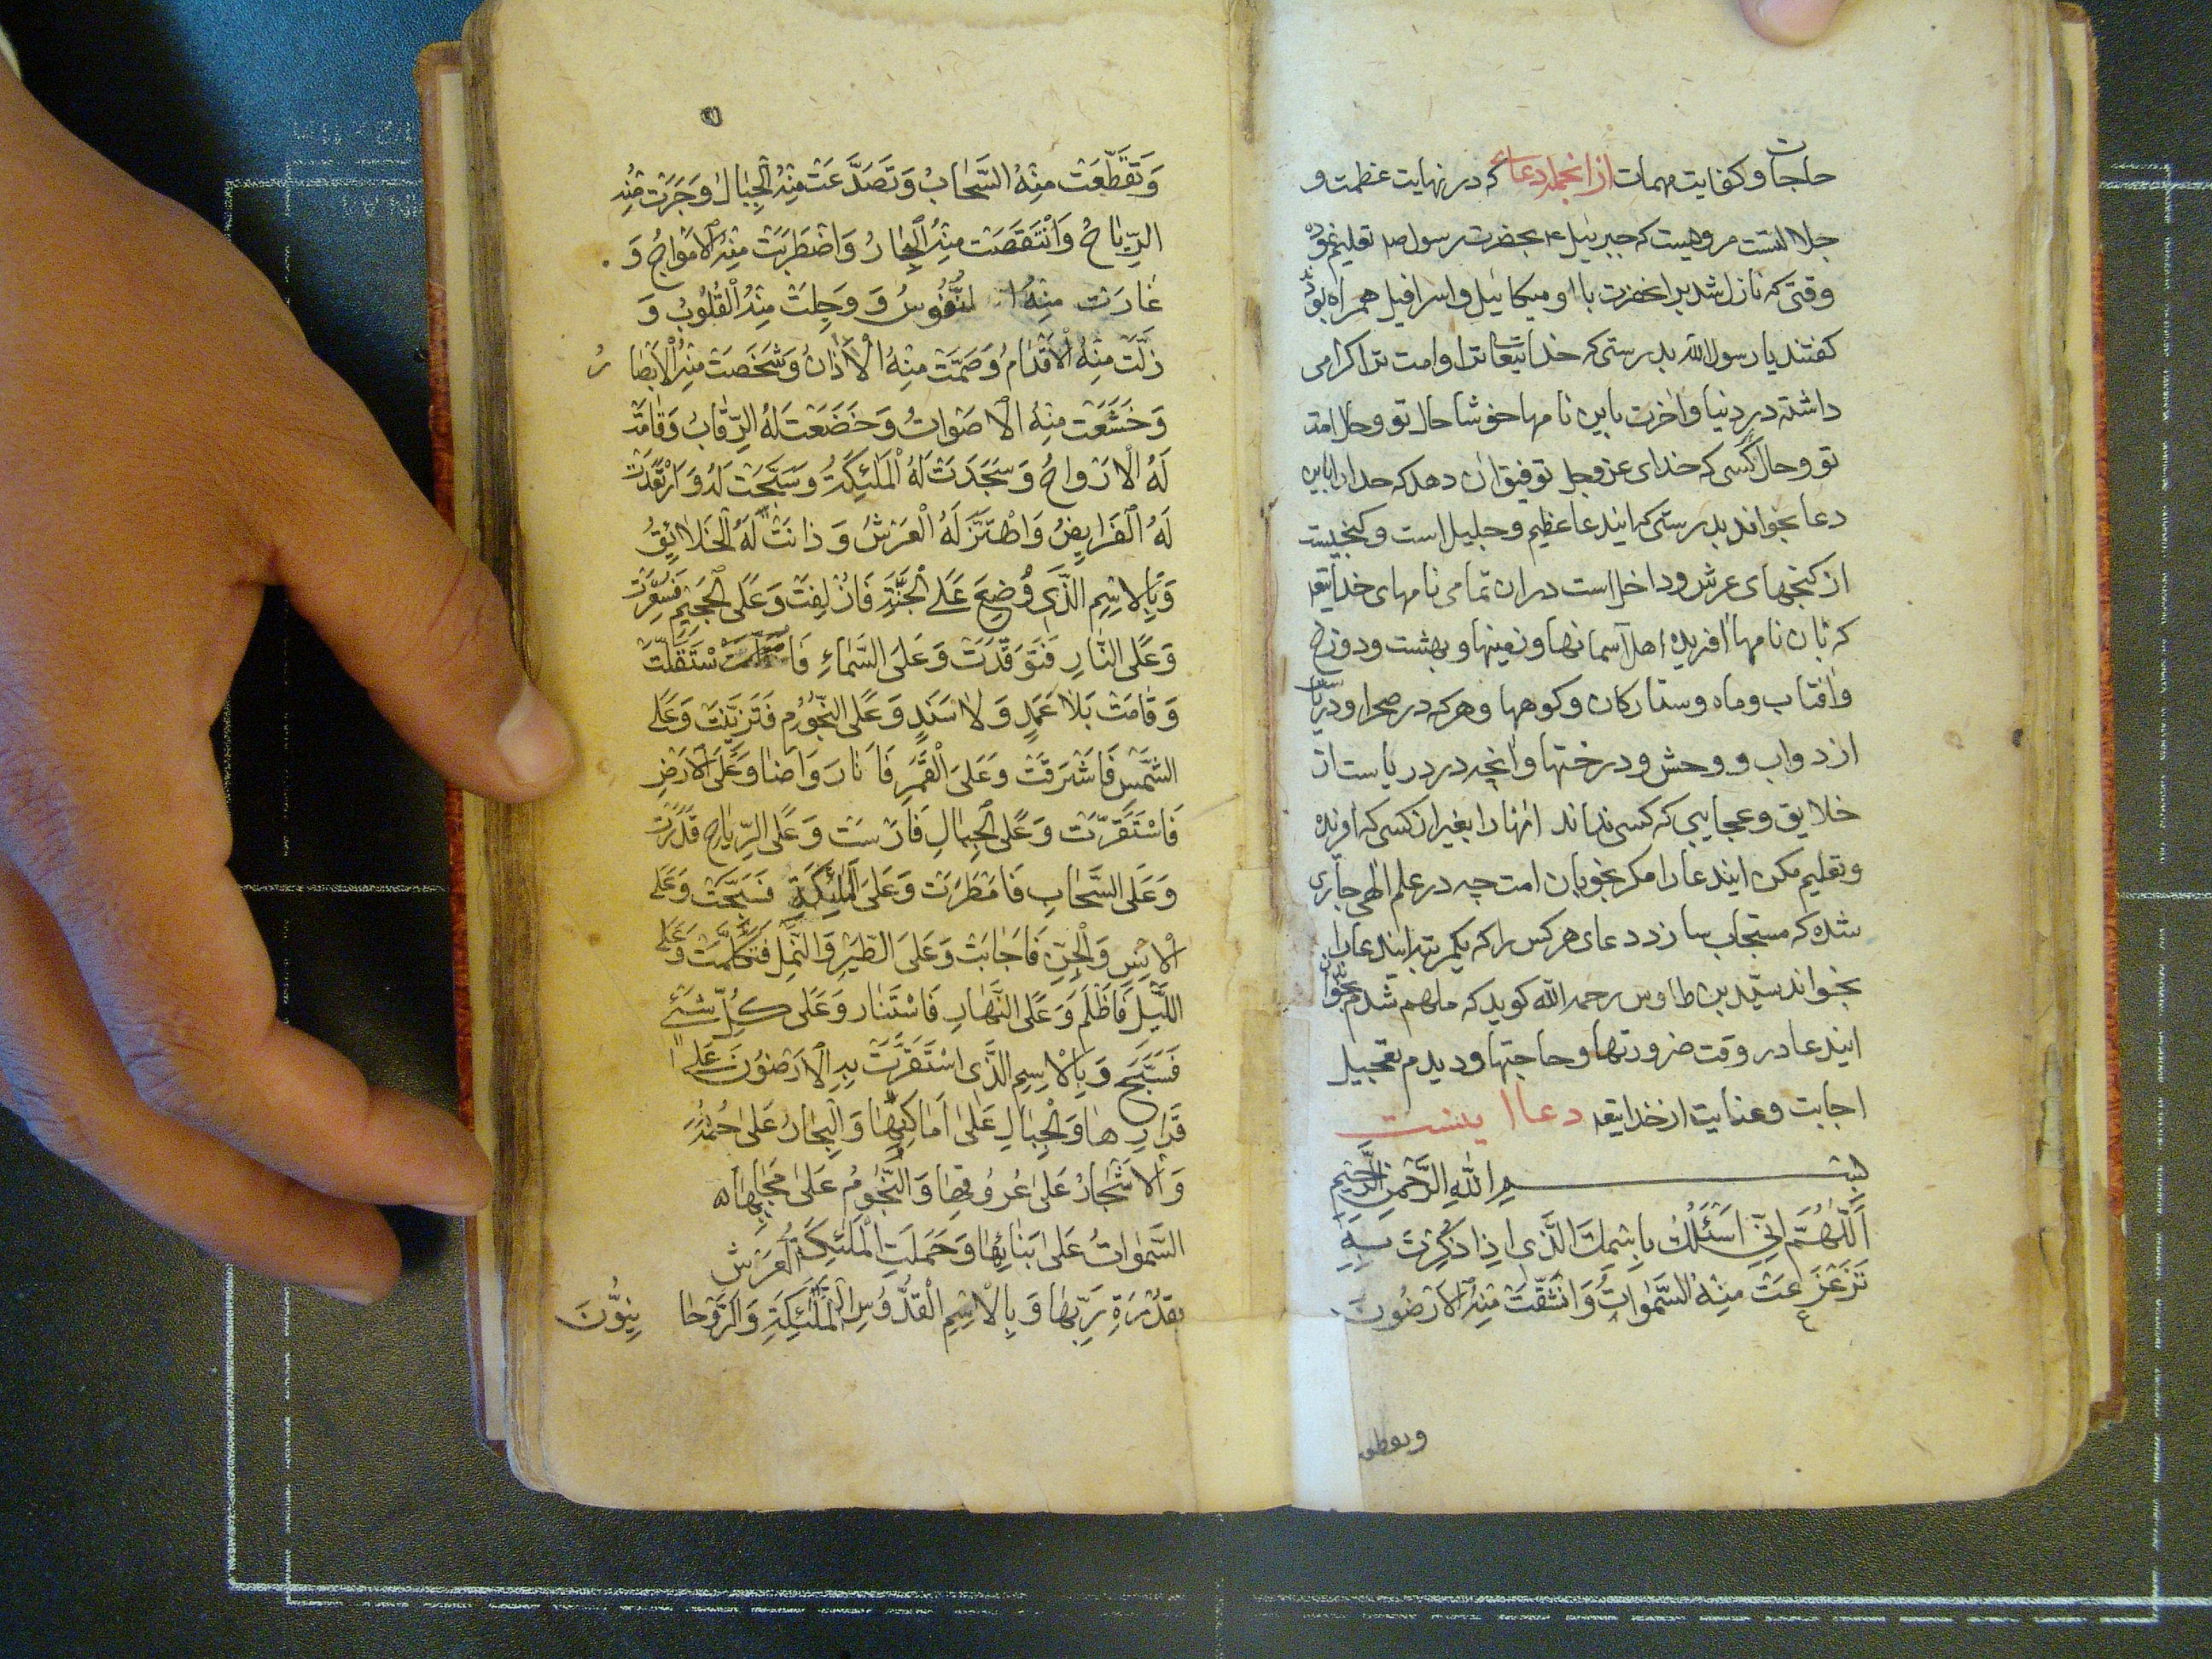 حاجات و کفایت مهمات از انجمله دعائ که در نهایت عظمت و
جلالتست مرویست که جبرئیل ۴ بحضرت رسول ص تعلیم نموده
وقتی که نازل شد بر انحضرت با او میکائیل و اسرافیل همراه بود
کفتند یا رسول الله بدرستی که خدایتعا ترا و امت ترا کرامی
داشته در دنیا و اخرت باین نامها خوشا حال تو و حال امت
تو و حال کسی که خدای عز و جل توفیق ان دهد که خدا را باین
دعا بخواند بدرستی که ایندعا عظیم و جلیل است و کنجیست
از کنجهای عرش و داخل است در ان تمامی نامهای خدایتعه
که بان نامها افریده اهل آسمانها و زمینها و بهشت و دوزخ
و افتاب و ماه و ستارکان و کوهها و هر که در صحرا و دریاست
از دواب و وحش و درختها و انچه در دریاست از
خلایق و عجایبی که کسی نداند انها را بغیر ان کسی که افریده
و تعلیم مکن ایندعا را مکر بخوبان امت چه در علم الهی جاری
شده که مستجاب سازد دعای هر کس را که یکمرتبه ایندعا را
بخواند سید بن طاوس رحمه الله کوید که ملهم شدم بخواندن
ایندعا در وقت ضرورتها و حاجتها و دیدم تعجیل
اجابت و عنایت از خدایتعه دعا اینست
بسم الله الرَّحْمنِ الرَّحِيمِ
اَللّهُمَّ اِنّي اَسْئَلُكَ بِاسْمِكَ الَّذي اِذا ذُكِرْتَ بِهِ
تَزَعْزَعَتْ مِنْهُ السَّمٰواتُ وَانْشَقَّتْ مِنْهُ الْاَرَضُونَ
وتقطعت
٣١
وَتَقَطَّعَتْ مِنْهُ السَّحابُ وَتَصَدَّعَتْ مِنْهُ الْجِبالُ وَجَرَتْ مِنْهُ
الرِّياحُ وَانْتَقَصَتْ مِنْهُ الْبِحارُ وَاضْطَرَبَتْ مِنْهُ الْاَمْواجُ وَ
غارَتْ مِنْهُ النُّفُوسُ وَ وَجِلَتْ مِنْهُ الْقُلُوبُ وَ
زَلَّتْ مِنْهُ الْاَقْدامُ وَصَمَّتْ مِنْهُ الْاٰذانُ وَشَخَصَتْ مِنْهُ الْاَبْصارُ
وَخَشَعَتْ مِنْهُ الْاَصْواتُ وَخَضَعَتْ لَهُ الرِّقابُ وَقامَتْ
لَهُ الْاَرْواحُ وَسَجَدَتْ لَهُ الْمَلٰئِكَةُ وَسَبَّحَتْ لَهُ وَارْتَعَدَتْ
لَهُ الْفَرايِضُ وَاهْتَزَّ لَهُ الْعَرْشُ وَ ذانَتْ لَهُ الْخَلايِقُ
وَبِالْاِسْمِ الَّذي وُضِعَ عَلَى الْجَنَّةِ فَاُزْلِفَتْ وَعَلَى الْجَحيمِ فَسُعِّرَتْ
وَعَلَى النّارِ فَتَوَقَّدَتْ وَعَلَى السَّماءِ فَاسْتَقَلَّتْ
وَقامَتْ بَلا عَمَدٍ وَلا سَنَدٍ وَعَلَى النُّجُومِ فَتَزَيَّنَتْ وَعَلَى
الشَّمْسِ فَاَشْرَقَتْ وَعَلَى الْقَمَرِ فَاَنارَ وَاَضٰا وَعَلَى الْاَرْضِ
فَاسْتَقَرَّتْ وَعَلَى الْجِبالِ فَاَرْسَتْ وَعَلَى الرِّياحِ فَذَرَتْ
وَعَلَى السَّحابِ فَاَمْطَرَتْ وَعَلَى الْمَلٰئِكَةِ فَسَبَّحَتْ وَعَلَى
الْاِنْسِ وَالْجِنِّ فَاَجابَتْ وَعَلَى الطَّيْرِ وَالنَّمْلِ فَتَكَلَّمَتْ وَعَلَى
اللَّيْلِ فَاَظْلَمَ وَعَلَى النَّهارِ فَاسْتَنارَ وَعَلى كُلِّ شَيْءٍ
فَسَبَّحَ وَبِالْاِسْمِ الَّذي اسْتَقَرَّتْ بِهِ الْاَرَضُونَ عَلى
قَرارِها وَالْجِبالِ عَلى اَماكِنِها وَالْبِحارُ عَلى حُدُودِها
وَالْاَشْجارُ عَلى عُرُوقِها وَالنُّجُومُ عَلى مَجاريها و
السَّمٰواتُ عَلى بَنائِها وَحَمَلَتِ الْمَلٰئِكَةُ الْعَرْشَ
بِقُدْرَةِ رَبِّها وَبِالْاِسْمِ الْقُدُّوسِ الْمَلٰئِكَةِ وَالرَّوْحانِيُّونَ